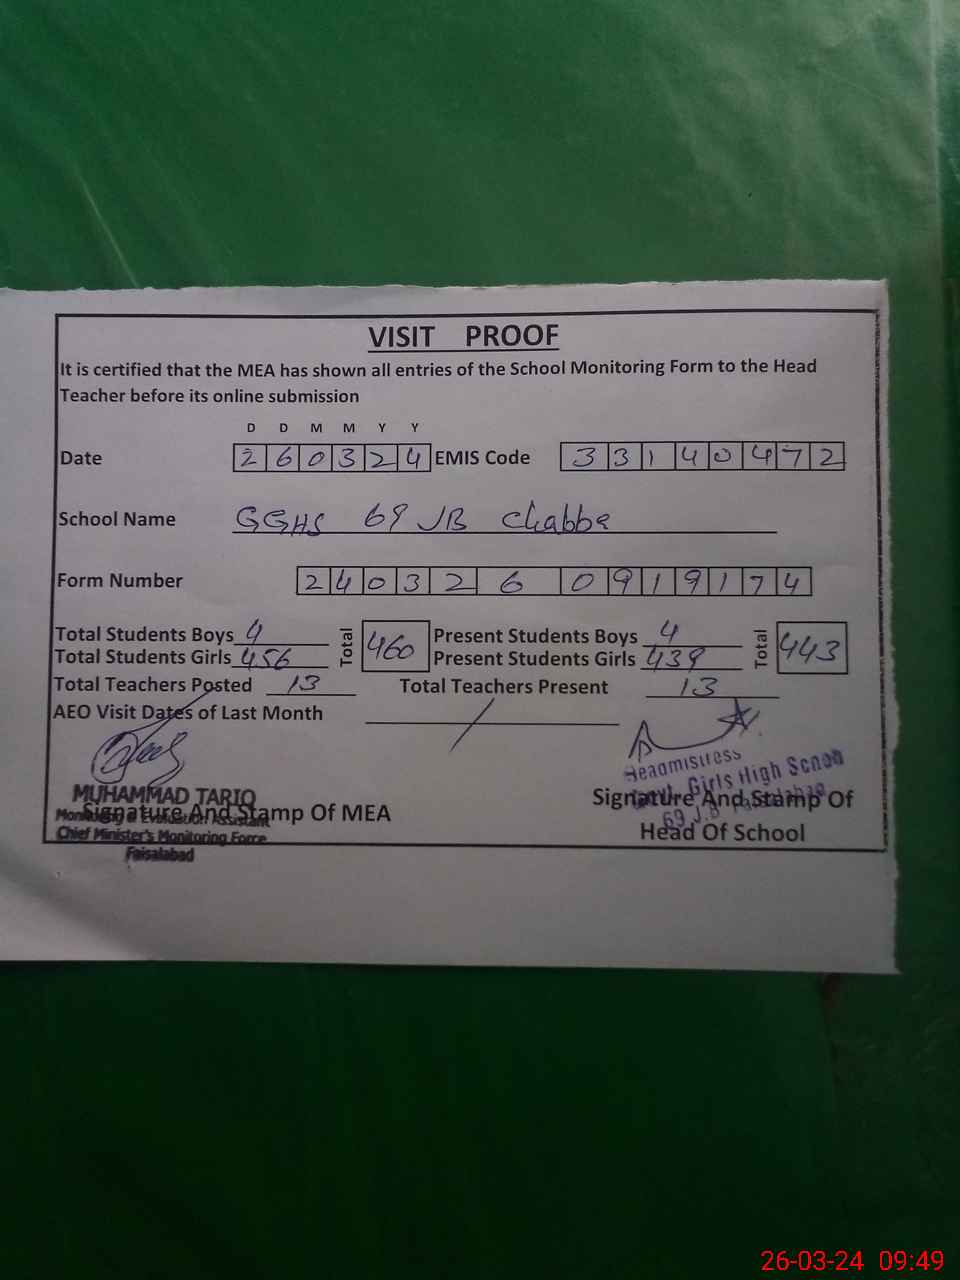 VISIT PROOF
It is certified that the MEA has shown all entries of the School Monitoring Form to the Head
Teacher before its online submission
D D M M Y Y
Date 2 6 0 3 2 4 EMIS Code 3 3 1 4 0 4 7 2
School Name GGHS 69 JB Chabba
Form Number 2 4 0 3 2 6 0 9 1 9 1 7 4
Total Students Boys 4 Total 460 Present Students Boys 4 Total 443
Total Students Girls 456 Present Students Girls 439
Total Teachers Posted 13 Total Teachers Present 13
AEO Visit Dates of Last Month /
Headmistress
Girls High School
69 J.B Faisalabad
MUHAMMAD TARIQ
Signature And Stamp Of MEA
Monitoring & Evaluation Assistant
Chief Minister's Monitoring Force
Faisalabad
Signature And Stamp Of
Head Of School
26-03-24 09:49